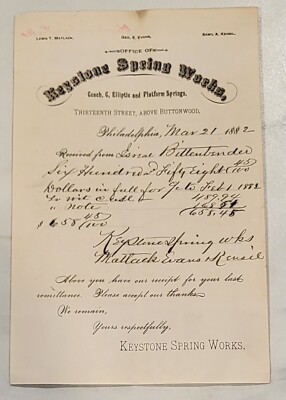 Lewis T. Matlack,
Geo. S. Evans,
Saml A. Kensel.
OFFICE OF
Keystone Spring Works,
Coach, C, Elliptic and Platform Springs.
THIRTEENTH STREET, ABOVE BUTTONWOOD,
Philadelphia, Mar 21 1882
Received from Israel Bittenbender
Six Hundred & Fifty Eight 45/100
Dollars in full for % to Feb 1 1882
To wit
" Note
658.45
$ 658 45/100
Keystone Spring Wks
Matlack Evans & Kensil
Above you have our receipt for your last
remittance. Please accept our thanks.
We remain,
Yours respectfully,
KEYSTONE SPRING WORKS.